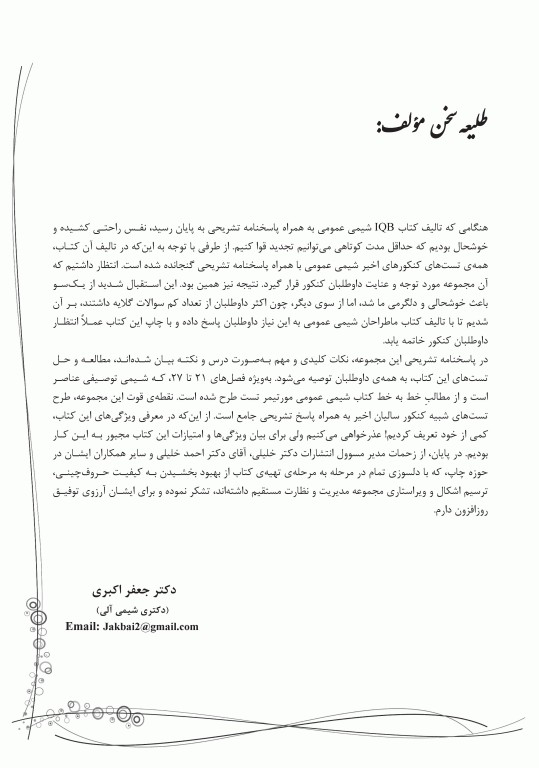 طلیعه سخن مؤلف:
هنگامی که تالیف کتاب IQB شیمی عمومی به همراه پاسخنامه تشریحی به پایان رسید، نفـس راحتـی کشـیده و
خوشحال بودیم که حداقل مدت کوتاهی می‌توانیم تجدید قوا کنیم. از طرفی با توجه به این‌که در تالیف آن کتـاب،
همه‌ی تست‌های کنکورهای اخیر شیمی عمومی با همراه پاسخنامه تشریحی گنجانده شده است. انتظار داشتیم که
آن مجموعه مورد توجه و عنایت داوطلبان کنکور قرار گیرد. نتیجه نیز همین بود. این اسـتقبال شـدید از یـک‌سـو
باعث خوشحالی و دلگرمی ما شد، اما از سوی دیگر، چون اکثر داوطلبان از تعداد کم سوالات گلایه داشتند، بـر آن
شدیم تا با تالیف کتاب ماطراحان شیمی عمومی به این نیاز داوطلبان پاسخ داده و با چاپ این کتاب عمـلاً انتظـار
داوطلبان کنکور خاتمه یابد.
در پاسخنامه تشریحی این مجموعه، نکات کلیدی و مهم بـه‌صـورت درس و نکتـه بیـان شـده‌انـد، مطالعـه و حـل
تست‌های این کتاب، به همه‌ی داوطلبان توصیه می‌شود. به‌ویژه فصل‌های ۲۱ تا ۲۷، کـه شـیمی توصـیفی عناصـر
است و از مطالبِ خط به خط کتاب شیمی عمومی مورتیمر تست طرح شده است. نقطه‌ی قوت این مجموعه، طرح
تست‌های شبیه کنکور سالیان اخیر به همراه پاسخ تشریحی جامع است. از این‌که در معرفی ویژگی‌های این کتاب،
کمی از خود تعریف کردیم! عذرخواهی می‌کنیم ولی برای بیان ویژگی‌ها و امتیازات این کتاب مجبور بـه ایـن کـار
بودیم. در پایان، از زحمات مدیر مسوول انتشارات دکتر خلیلی، آقای دکتر احمد خلیلی و سایر همکاران ایشـان در
حوزه چاپ، که با دلسوزی تمام در مرحله به مرحله‌ی تهیه‌ی کتاب از بهبود بخشـیدن بـه کیفیـت حـروف‌چینـی،
ترسیم اشکال و ویراستاری مجموعه مدیریت و نظارت مستقیم داشته‌اند، تشکر نموده و برای ایشـان آرزوی توفیـق
روزافزون دارم.
دکتر جعفر اکبری
(دکتری شیمی آلی)
Email: Jakbai2@gmail.com